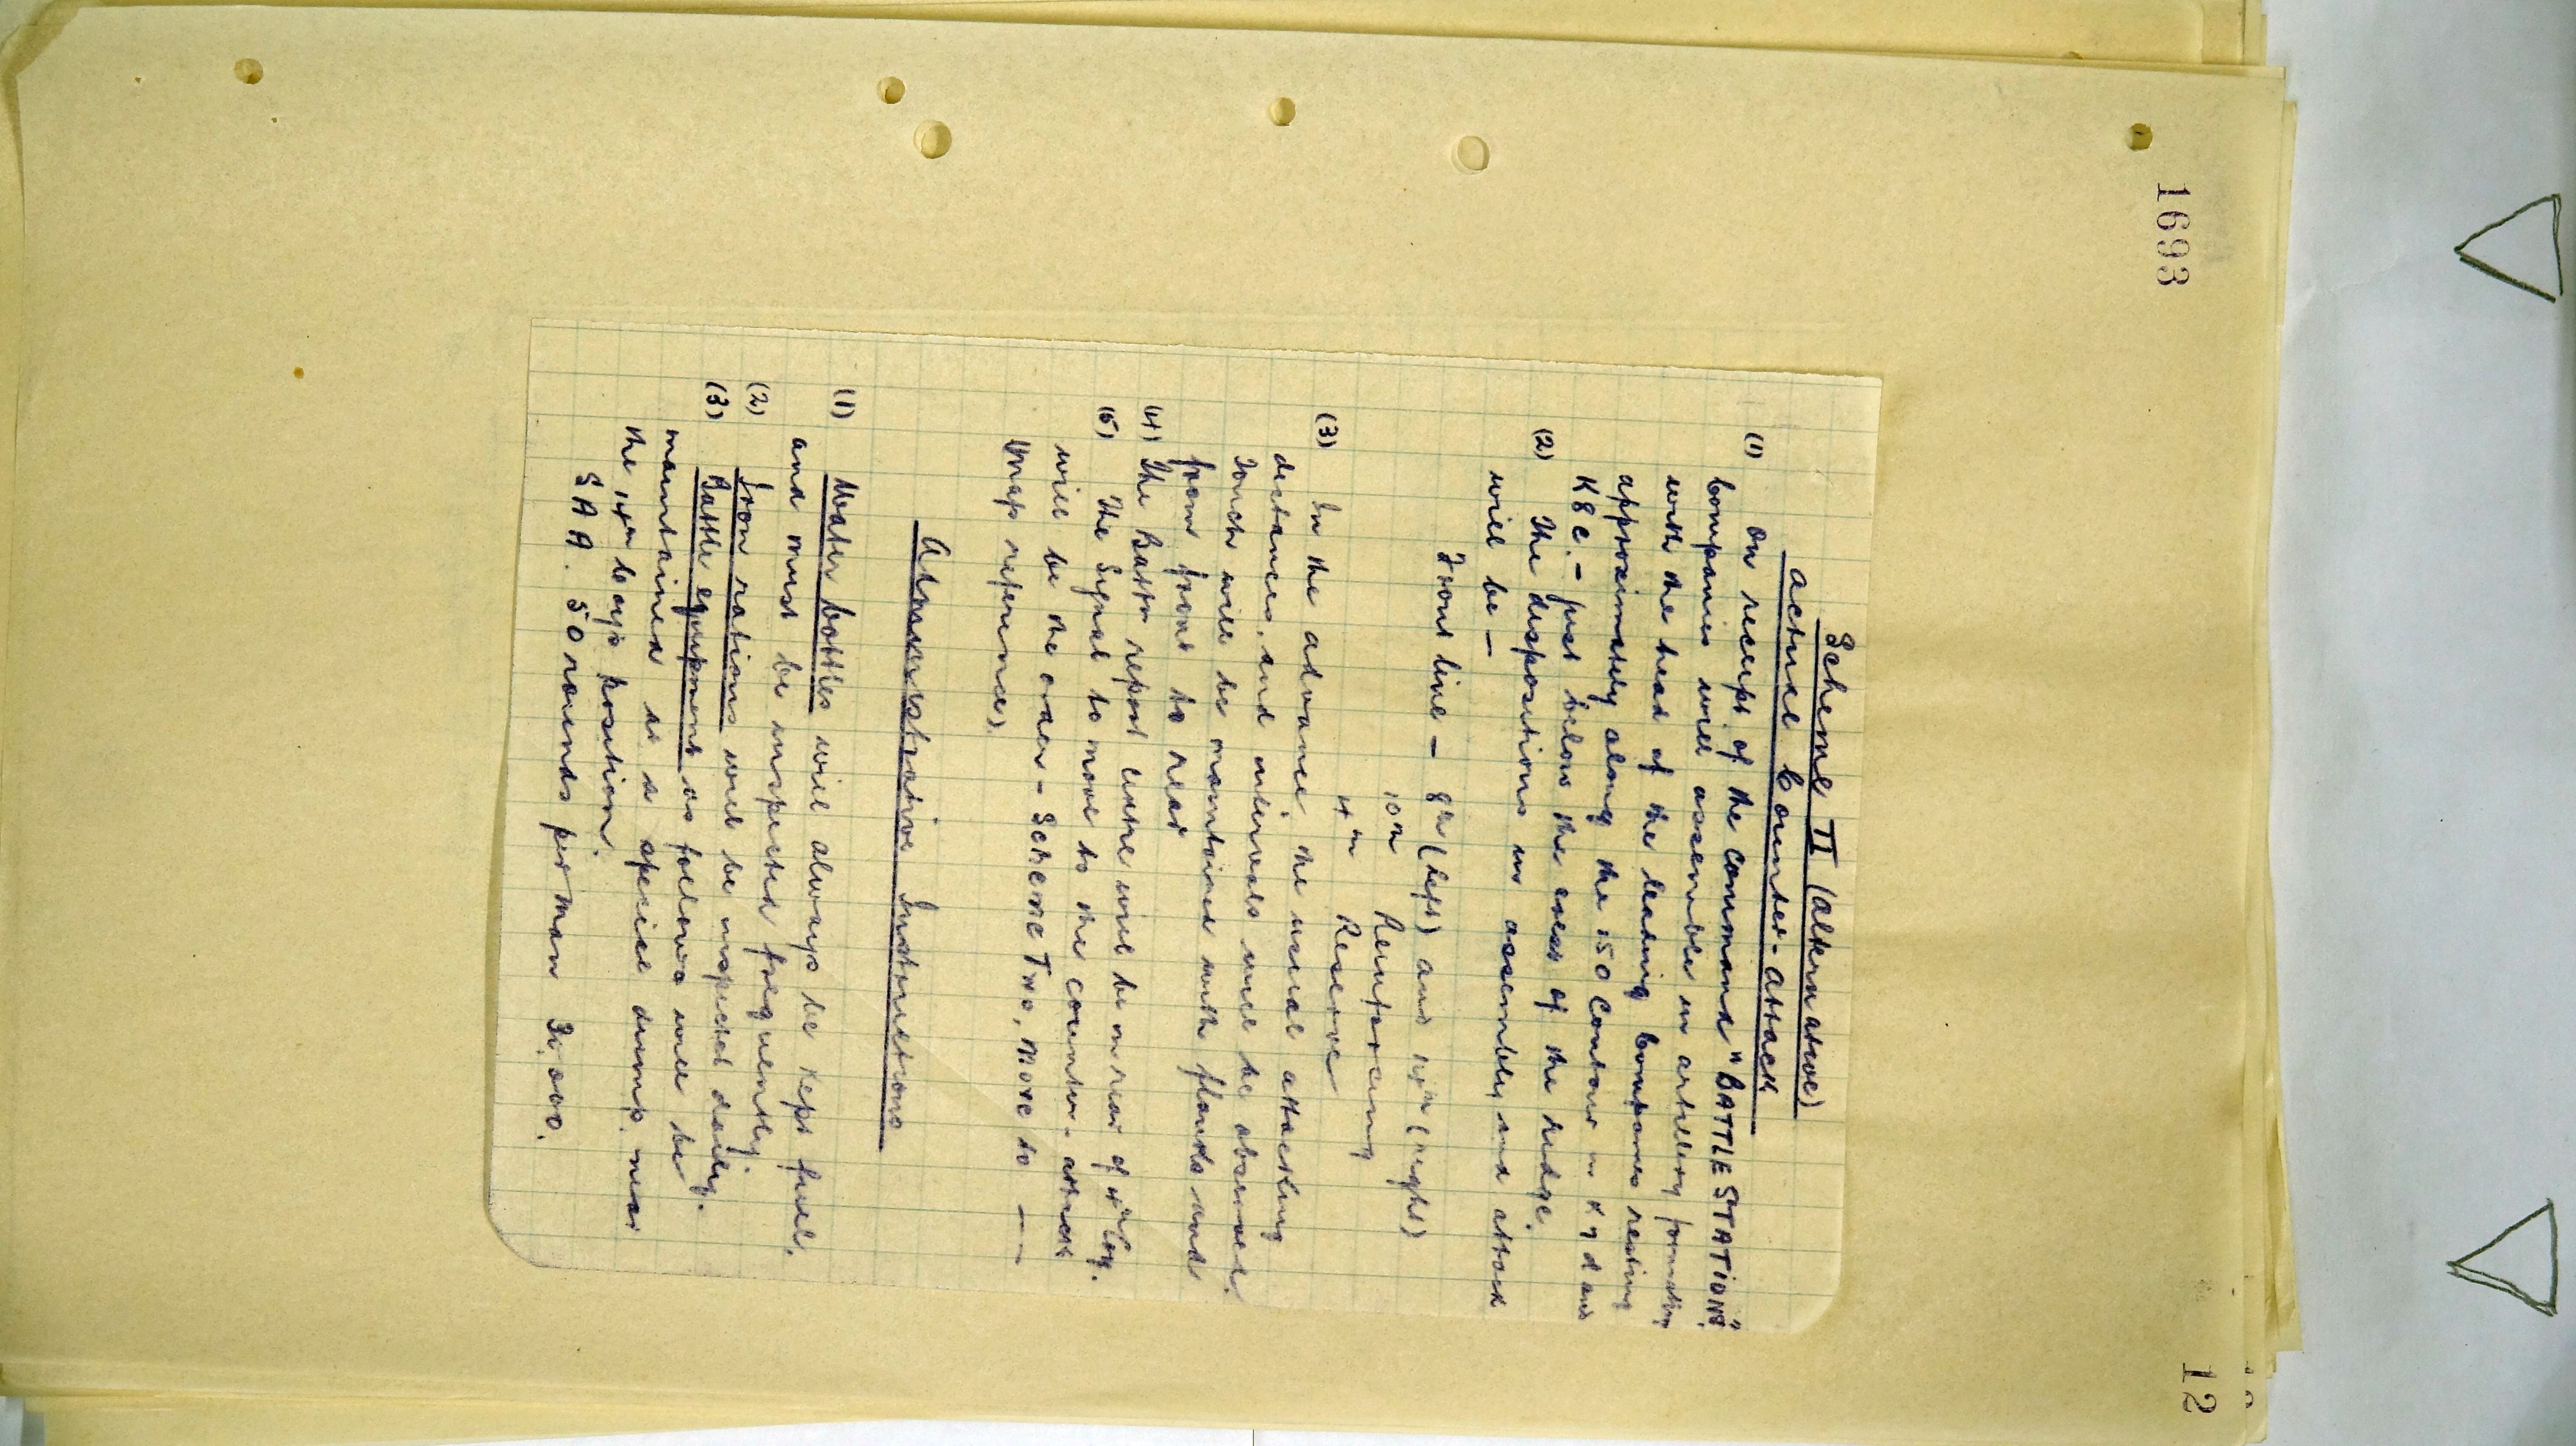 1693
12
Scheme II (alternative)
Actual Counter-Attack
(1) On receipt of the command "BATTLE STATIONS"
Companies will assemble in artillery formation
with the head of the leading Companies resting
approximately along the 150 Contour in K 7 d and
K 8 c. - just below the crest of the ridge.
(2) The dispositions in assembly and attack
will be -
Front line - 8th (left) and (right)
10th Reinforcing
4th Reserve
(3) In the advance, the usual attacking
distances, and intervals will be observed.
Touch will be maintained with flanks and
from front to rear
(4) The Battn report centre will be in rear of 4th Coy.
(5) The Signal to move to the counter-attack
will be the order - SCHEME TWO, MOVE to —
(map references)
Administrative Instructions
(1) Water bottles will always be kept full,
and must be inspected frequently.
(2) Iron rations will be inspected daily.
(3) Battle equipment as follows will be
maintained at a special dump near
the Coys position.
S A A. 50 rounds per man